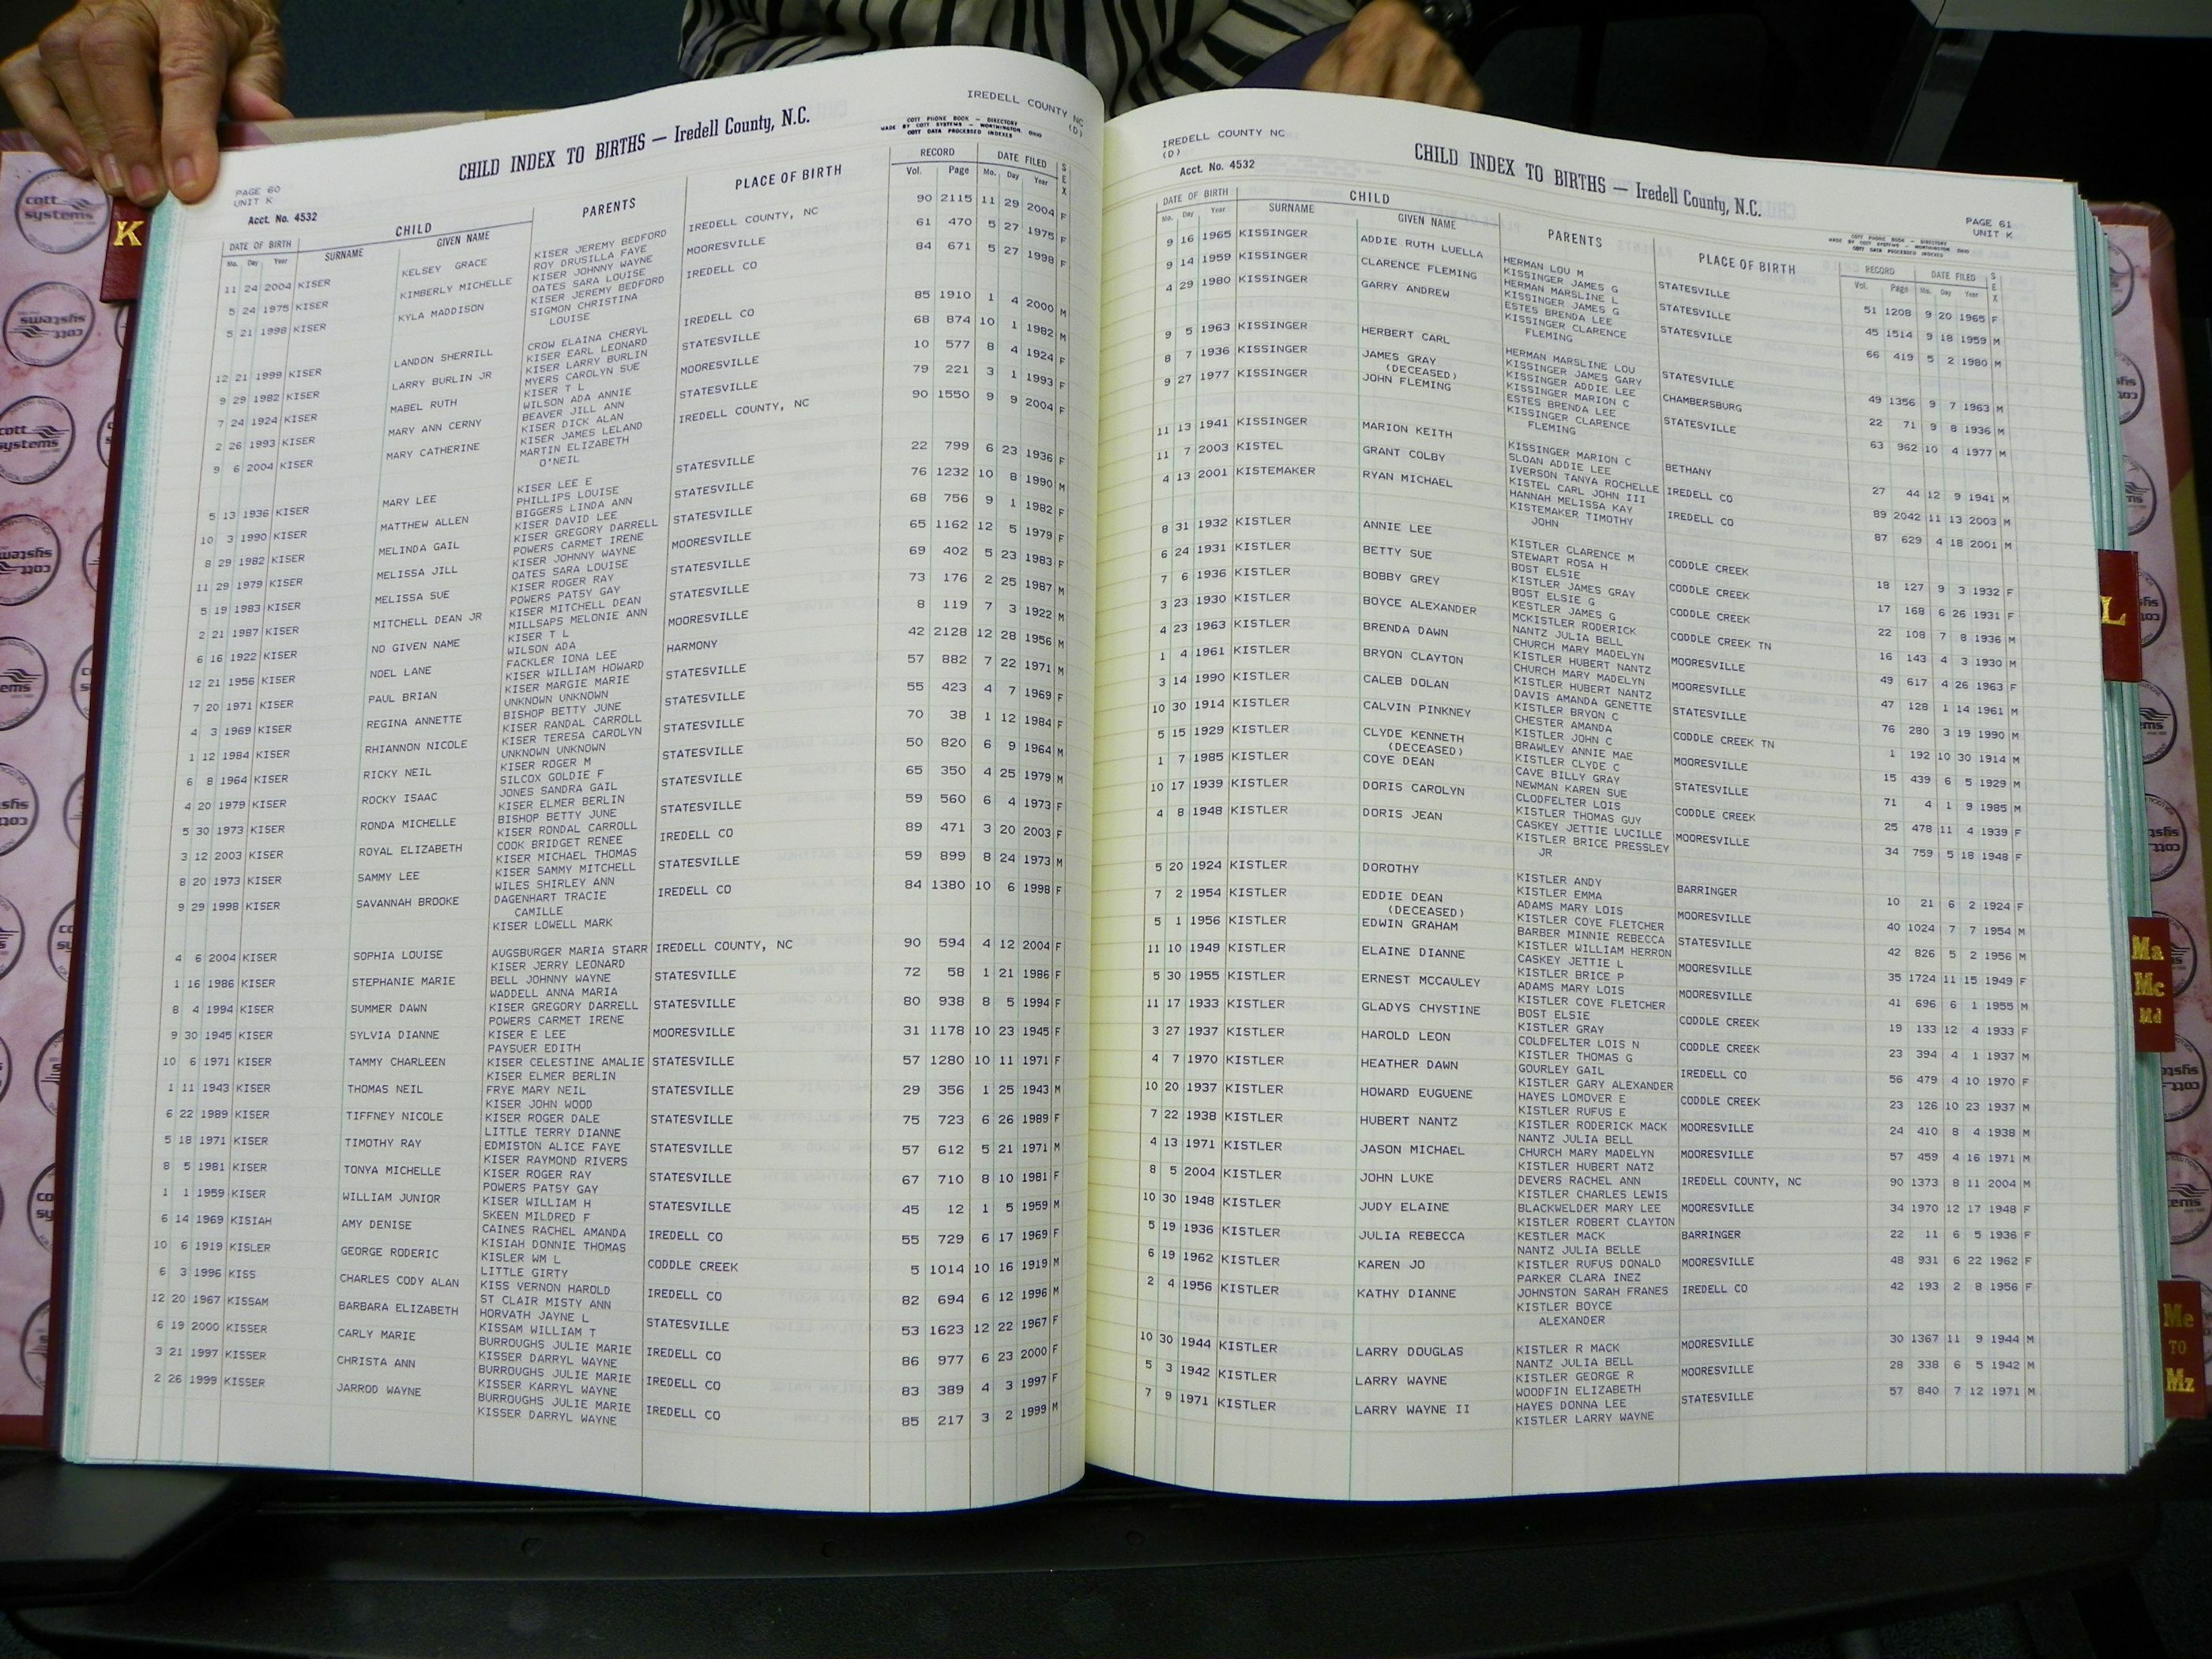 IREDELL COUNTY NC
(D)
CHILD INDEX TO BIRTHS — Iredell County, N.C.
COTT PHONE BOOK - DIRECTORY
MADE BY COTT SYSTEMS - WORTHINGTON, OHIO
COTT DATA PROCESSED INDEXES
PAGE 60
UNIT K
Acct. No. 4532
DATE OF BIRTH CHILD PARENTS PLACE OF BIRTH RECORD DATE FILED SEX
Mo. Day Year SURNAME GIVEN NAME Vol. Page Mo. Day Year
11 24 2004 KISER KELSEY GRACE KISER JEREMY BEDFORD IREDELL COUNTY, NC 90 2115 11 29 2004 F
ROY DRUSILLA FAYE
5 24 1975 KISER KIMBERLY MICHELLE KISER JOHNNY WAYNE MOORESVILLE 61 470 5 27 1975 F
OATES SARA LOUISE
5 21 1998 KISER KYLA MADDISON KISER JEREMY BEDFORD IREDELL CO 84 671 5 27 1998 F
SIGMON CHRISTINA
LOUISE
12 21 1999 KISER LANDON SHERRILL CROW ELAINA CHERYL IREDELL CO 85 1910 1 4 2000 M
KISER EARL LEONARD
9 29 1982 KISER LARRY BURLIN JR KISER LARRY BURLIN STATESVILLE 68 874 10 1 1982 M
MYERS CAROLYN SUE
7 24 1924 KISER MABEL RUTH KISER T L MOORESVILLE 10 577 8 4 1924 F
WILSON ADA ANNIE
2 26 1993 KISER MARY ANN CERNY BEAVER JILL ANN STATESVILLE 79 221 3 1 1993 F
KISER DICK ALAN
9 6 2004 KISER MARY CATHERINE KISER JAMES LELAND IREDELL COUNTY, NC 90 1550 9 9 2004 F
MARTIN ELIZABETH
O'NEIL
5 13 1936 KISER MARY LEE KISER LEE E STATESVILLE 22 799 6 23 1936 F
PHILLIPS LOUISE
10 3 1990 KISER MATTHEW ALLEN BIGGERS LINDA ANN STATESVILLE 76 1232 10 8 1990 M
KISER DAVID LEE
8 29 1982 KISER MELINDA GAIL KISER GREGORY DARRELL STATESVILLE 68 756 9 1 1982 F
POWERS CARMET IRENE
11 29 1979 KISER MELISSA JILL KISER JOHNNY WAYNE MOORESVILLE 65 1162 12 5 1979 F
OATES SARA LOUISE
5 19 1983 KISER MELISSA SUE KISER ROGER RAY STATESVILLE 69 402 5 23 1983 F
POWERS PATSY GAY
2 21 1987 KISER MITCHELL DEAN JR KISER MITCHELL DEAN STATESVILLE 73 176 2 25 1987 M
MILLSAPS MELONIE ANN
6 16 1922 KISER NO GIVEN NAME KISER T L MOORESVILLE 8 119 7 3 1922 M
WILSON ADA
12 21 1956 KISER NOEL LANE FACKLER IONA LEE HARMONY 42 2128 12 28 1956 M
KISER WILLIAM HOWARD
7 20 1971 KISER PAUL BRIAN KISER MARGIE MARIE STATESVILLE 57 882 7 22 1971 M
UNKNOWN UNKNOWN
4 3 1969 KISER REGINA ANNETTE BISHOP BETTY JUNE STATESVILLE 55 423 4 7 1969 F
KISER RANDAL CARROLL
1 12 1984 KISER RHIANNON NICOLE KISER TERESA CAROLYN STATESVILLE 70 38 1 12 1984 F
UNKNOWN UNKNOWN
6 8 1964 KISER RICKY NEIL KISER ROGER M STATESVILLE 50 820 6 9 1964 M
SILCOX GOLDIE F
4 20 1979 KISER ROCKY ISAAC JONES SANDRA GAIL STATESVILLE 65 350 4 25 1979 M
KISER ELMER BERLIN
5 30 1973 KISER RONDA MICHELLE BISHOP BETTY JUNE STATESVILLE 59 560 6 4 1973 F
KISER RONDAL CARROLL
3 12 2003 KISER ROYAL ELIZABETH COOK BRIDGET RENEE IREDELL CO 89 471 3 20 2003 F
KISER MICHAEL THOMAS
8 20 1973 KISER SAMMY LEE KISER SAMMY MITCHELL STATESVILLE 59 899 8 24 1973 M
WILES SHIRLEY ANN
9 29 1998 KISER SAVANNAH BROOKE DAGENHART TRACIE IREDELL CO 84 1380 10 6 1998 F
CAMILLE
KISER LOWELL MARK
4 6 2004 KISER SOPHIA LOUISE AUGSBURGER MARIA STARR IREDELL COUNTY, NC 90 594 4 12 2004 F
KISER JERRY LEONARD
1 16 1986 KISER STEPHANIE MARIE BELL JOHNNY WAYNE STATESVILLE 72 58 1 21 1986 F
WADDELL ANNA MARIA
8 4 1994 KISER SUMMER DAWN KISER GREGORY DARRELL STATESVILLE 80 938 8 5 1994 F
POWERS CARMET IRENE
9 30 1945 KISER SYLVIA DIANNE KISER E LEE MOORESVILLE 31 1178 10 23 1945 F
PAYSUER EDITH
10 6 1971 KISER TAMMY CHARLEEN KISER CELESTINE AMALIE STATESVILLE 57 1280 10 11 1971 F
KISER ELMER BERLIN
1 11 1943 KISER THOMAS NEIL FRYE MARY NEIL STATESVILLE 29 356 1 25 1943 M
KISER JOHN WOOD
6 22 1989 KISER TIFFNEY NICOLE KISER ROGER DALE STATESVILLE 75 723 6 26 1989 F
LITTLE TERRY DIANNE
5 18 1971 KISER TIMOTHY RAY EDMISTON ALICE FAYE STATESVILLE 57 612 5 21 1971 M
KISER RAYMOND RIVERS
8 5 1981 KISER TONYA MICHELLE KISER ROGER RAY STATESVILLE 67 710 8 10 1981 F
POWERS PATSY GAY
1 1 1959 KISER WILLIAM JUNIOR KISER WILLIAM H STATESVILLE 45 12 1 5 1959 M
SKEEN MILDRED F
6 14 1969 KISIAH AMY DENISE CAINES RACHEL AMANDA IREDELL CO 55 729 6 17 1969 F
KISIAH DONNIE THOMAS
10 6 1919 KISLER GEORGE RODERIC KISLER WM L CODDLE CREEK 5 1014 10 16 1919 M
LITTLE GIRTY
6 3 1996 KISS CHARLES CODY ALAN KISS VERNON HAROLD IREDELL CO 82 694 6 12 1996 M
ST CLAIR MISTY ANN
12 20 1967 KISSAM BARBARA ELIZABETH HORVATH JAYNE L STATESVILLE 53 1623 12 22 1967 F
KISSAM WILLIAM T
6 19 2000 KISSER CARLY MARIE BURROUGHS JULIE MARIE IREDELL CO 86 977 6 23 2000 F
KISSER DARRYL WAYNE
3 21 1997 KISSER CHRISTA ANN BURROUGHS JULIE MARIE IREDELL CO 83 389 4 3 1997 F
KISSER KARRYL WAYNE
2 26 1999 KISSER JARROD WAYNE BURROUGHS JULIE MARIE IREDELL CO 85 217 3 2 1999 M
KISSER DARRYL WAYNE
IREDELL COUNTY NC
(D)
Acct. No. 4532
CHILD INDEX TO BIRTHS — Iredell County, N.C.
PAGE 61
UNIT K
COTT PHONE BOOK - DIRECTORY
MADE BY COTT SYSTEMS - WORTHINGTON, OHIO
COTT DATA PROCESSED INDEXES
DATE OF BIRTH CHILD PARENTS PLACE OF BIRTH RECORD DATE FILED SEX
Mo. Day Year SURNAME GIVEN NAME Vol. Page Mo. Day Year
9 16 1965 KISSINGER ADDIE RUTH LUELLA HERMAN LOU M STATESVILLE 51 1208 9 20 1965 F
KISSINGER JAMES G
9 14 1959 KISSINGER CLARENCE FLEMING HERMAN MARSLINE L STATESVILLE 45 1514 9 18 1959 M
KISSINGER JAMES G
4 29 1980 KISSINGER GARRY ANDREW ESTES BRENDA LEE STATESVILLE 66 419 5 2 1980 M
KISSINGER CLARENCE
FLEMING
9 5 1963 KISSINGER HERBERT CARL HERMAN MARSLINE LOU STATESVILLE 49 1356 9 7 1963 M
KISSINGER JAMES GARY
8 7 1936 KISSINGER JAMES GRAY KISSINGER ADDIE LEE CHAMBERSBURG 22 71 9 8 1936 M
(DECEASED) KISSINGER MARION C
9 27 1977 KISSINGER JOHN FLEMING ESTES BRENDA LEE STATESVILLE 63 962 10 4 1977 M
KISSINGER CLARENCE
FLEMING
11 13 1941 KISSINGER MARION KEITH KISSINGER MARION C BETHANY 27 44 12 9 1941 M
SLOAN ADDIE LEE
11 7 2003 KISTEL GRANT COLBY IVERSON TANYA ROCHELLE IREDELL CO 89 2042 11 13 2003 M
KISTEL CARL JOHN III
4 13 2001 KISTEMAKER RYAN MICHAEL HANNAH MELISSA KAY IREDELL CO 87 629 4 18 2001 M
KISTEMAKER TIMOTHY
JOHN
8 31 1932 KISTLER ANNIE LEE KISTLER CLARENCE M CODDLE CREEK 18 127 9 3 1932 F
STEWART ROSA H
6 24 1931 KISTLER BETTY SUE BOST ELSIE CODDLE CREEK 17 168 6 26 1931 F
KISTLER JAMES GRAY
7 6 1936 KISTLER BOBBY GREY BOST ELSIE G CODDLE CREEK 22 108 7 8 1936 M
KESTLER JAMES G
3 23 1930 KISTLER BOYCE ALEXANDER MCKISTLER RODERICK CODDLE CREEK TN 16 143 4 3 1930 M
NANTZ JULIA BELL
4 23 1963 KISTLER BRENDA DAWN CHURCH MARY MADELYN MOORESVILLE 49 617 4 26 1963 F
KISTLER HUBERT NANTZ
1 4 1961 KISTLER BRYON CLAYTON CHURCH MARY MADELYN MOORESVILLE 47 128 1 14 1961 M
KISTLER HUBERT NANTZ
3 14 1990 KISTLER CALEB DOLAN DAVIS AMANDA GENETTE STATESVILLE 76 280 3 19 1990 M
KISTLER BRYON C
10 30 1914 KISTLER CALVIN PINKNEY CHESTER AMANDA CODDLE CREEK TN 1 192 10 30 1914 M
KISTLER JOHN C
5 15 1929 KISTLER CLYDE KENNETH BRAWLEY ANNIE MAE MOORESVILLE 15 439 6 5 1929 M
(DECEASED) KISTLER CLYDE C
1 7 1985 KISTLER COYE DEAN CAVE BILLY GRAY STATESVILLE 71 4 1 9 1985 M
NEWMAN KAREN SUE
10 17 1939 KISTLER DORIS CAROLYN CLODFELTER LOIS CODDLE CREEK 25 478 11 4 1939 F
KISTLER THOMAS GUY
4 8 1948 KISTLER DORIS JEAN CASKEY JETTIE LUCILLE MOORESVILLE 34 759 5 18 1948 F
KISTLER BRICE PRESSLEY
JR
5 20 1924 KISTLER DOROTHY KISTLER ANDY BARRINGER 10 21 6 2 1924 F
KISTLER EMMA
7 2 1954 KISTLER EDDIE DEAN ADAMS MARY LOIS MOORESVILLE 40 1024 7 7 1954 M
(DECEASED) KISTLER COYE FLETCHER
5 1 1956 KISTLER EDWIN GRAHAM BARBER MINNIE REBECCA STATESVILLE 42 826 5 2 1956 M
KISTLER WILLIAM HERRON
11 10 1949 KISTLER ELAINE DIANNE CASKEY JETTIE L MOORESVILLE 35 1724 11 15 1949 F
KISTLER BRICE P
5 30 1955 KISTLER ERNEST MCCAULEY ADAMS MARY LOIS MOORESVILLE 41 696 6 1 1955 M
KISTLER COYE FLETCHER
11 17 1933 KISTLER GLADYS CHYSTINE BOST ELSIE CODDLE CREEK 19 133 12 4 1933 F
KISTLER GRAY
3 27 1937 KISTLER HAROLD LEON COLDFELTER LOIS N CODDLE CREEK 23 394 4 1 1937 M
KISTLER THOMAS G
4 7 1970 KISTLER HEATHER DAWN GOURLEY GAIL IREDELL CO 56 479 4 10 1970 F
KISTLER GARY ALEXANDER
10 20 1937 KISTLER HOWARD EUGUENE HAYES LOMOVER E CODDLE CREEK 23 126 10 23 1937 M
KISTLER RUFUS E
7 22 1938 KISTLER HUBERT NANTZ KISTLER RODERICK MACK MOORESVILLE 24 410 8 4 1938 M
NANTZ JULIA BELL
4 13 1971 KISTLER JASON MICHAEL CHURCH MARY MADELYN MOORESVILLE 57 459 4 16 1971 M
KISTLER HUBERT NATZ
8 5 2004 KISTLER JOHN LUKE DEVERS RACHEL ANN IREDELL COUNTY, NC 90 1373 8 11 2004 M
KISTLER CHARLES LEWIS
10 30 1948 KISTLER JUDY ELAINE BLACKWELDER MARY LEE MOORESVILLE 34 1970 12 17 1948 F
KISTLER ROBERT CLAYTON
5 19 1936 KISTLER JULIA REBECCA KESTLER MACK BARRINGER 22 11 6 5 1936 F
NANTZ JULIA BELLE
6 19 1962 KISTLER KAREN JO KISTLER RUFUS DONALD MOORESVILLE 48 931 6 22 1962 F
PARKER CLARA INEZ
2 4 1956 KISTLER KATHY DIANNE JOHNSTON SARAH FRANES IREDELL CO 42 193 2 8 1956 F
KISTLER BOYCE
ALEXANDER
10 30 1944 KISTLER LARRY DOUGLAS KISTLER R MACK MOORESVILLE 30 1367 11 9 1944 M
NANTZ JULIA BELL
5 3 1942 KISTLER LARRY WAYNE KISTLER GEORGE R MOORESVILLE 28 338 6 5 1942 M
WOODFIN ELIZABETH
7 9 1971 KISTLER LARRY WAYNE II HAYES DONNA LEE STATESVILLE 57 840 7 12 1971 M
KISTLER LARRY WAYNE
K
L
Ma
Mc
Md
Me
TO
Mz
cott
systems